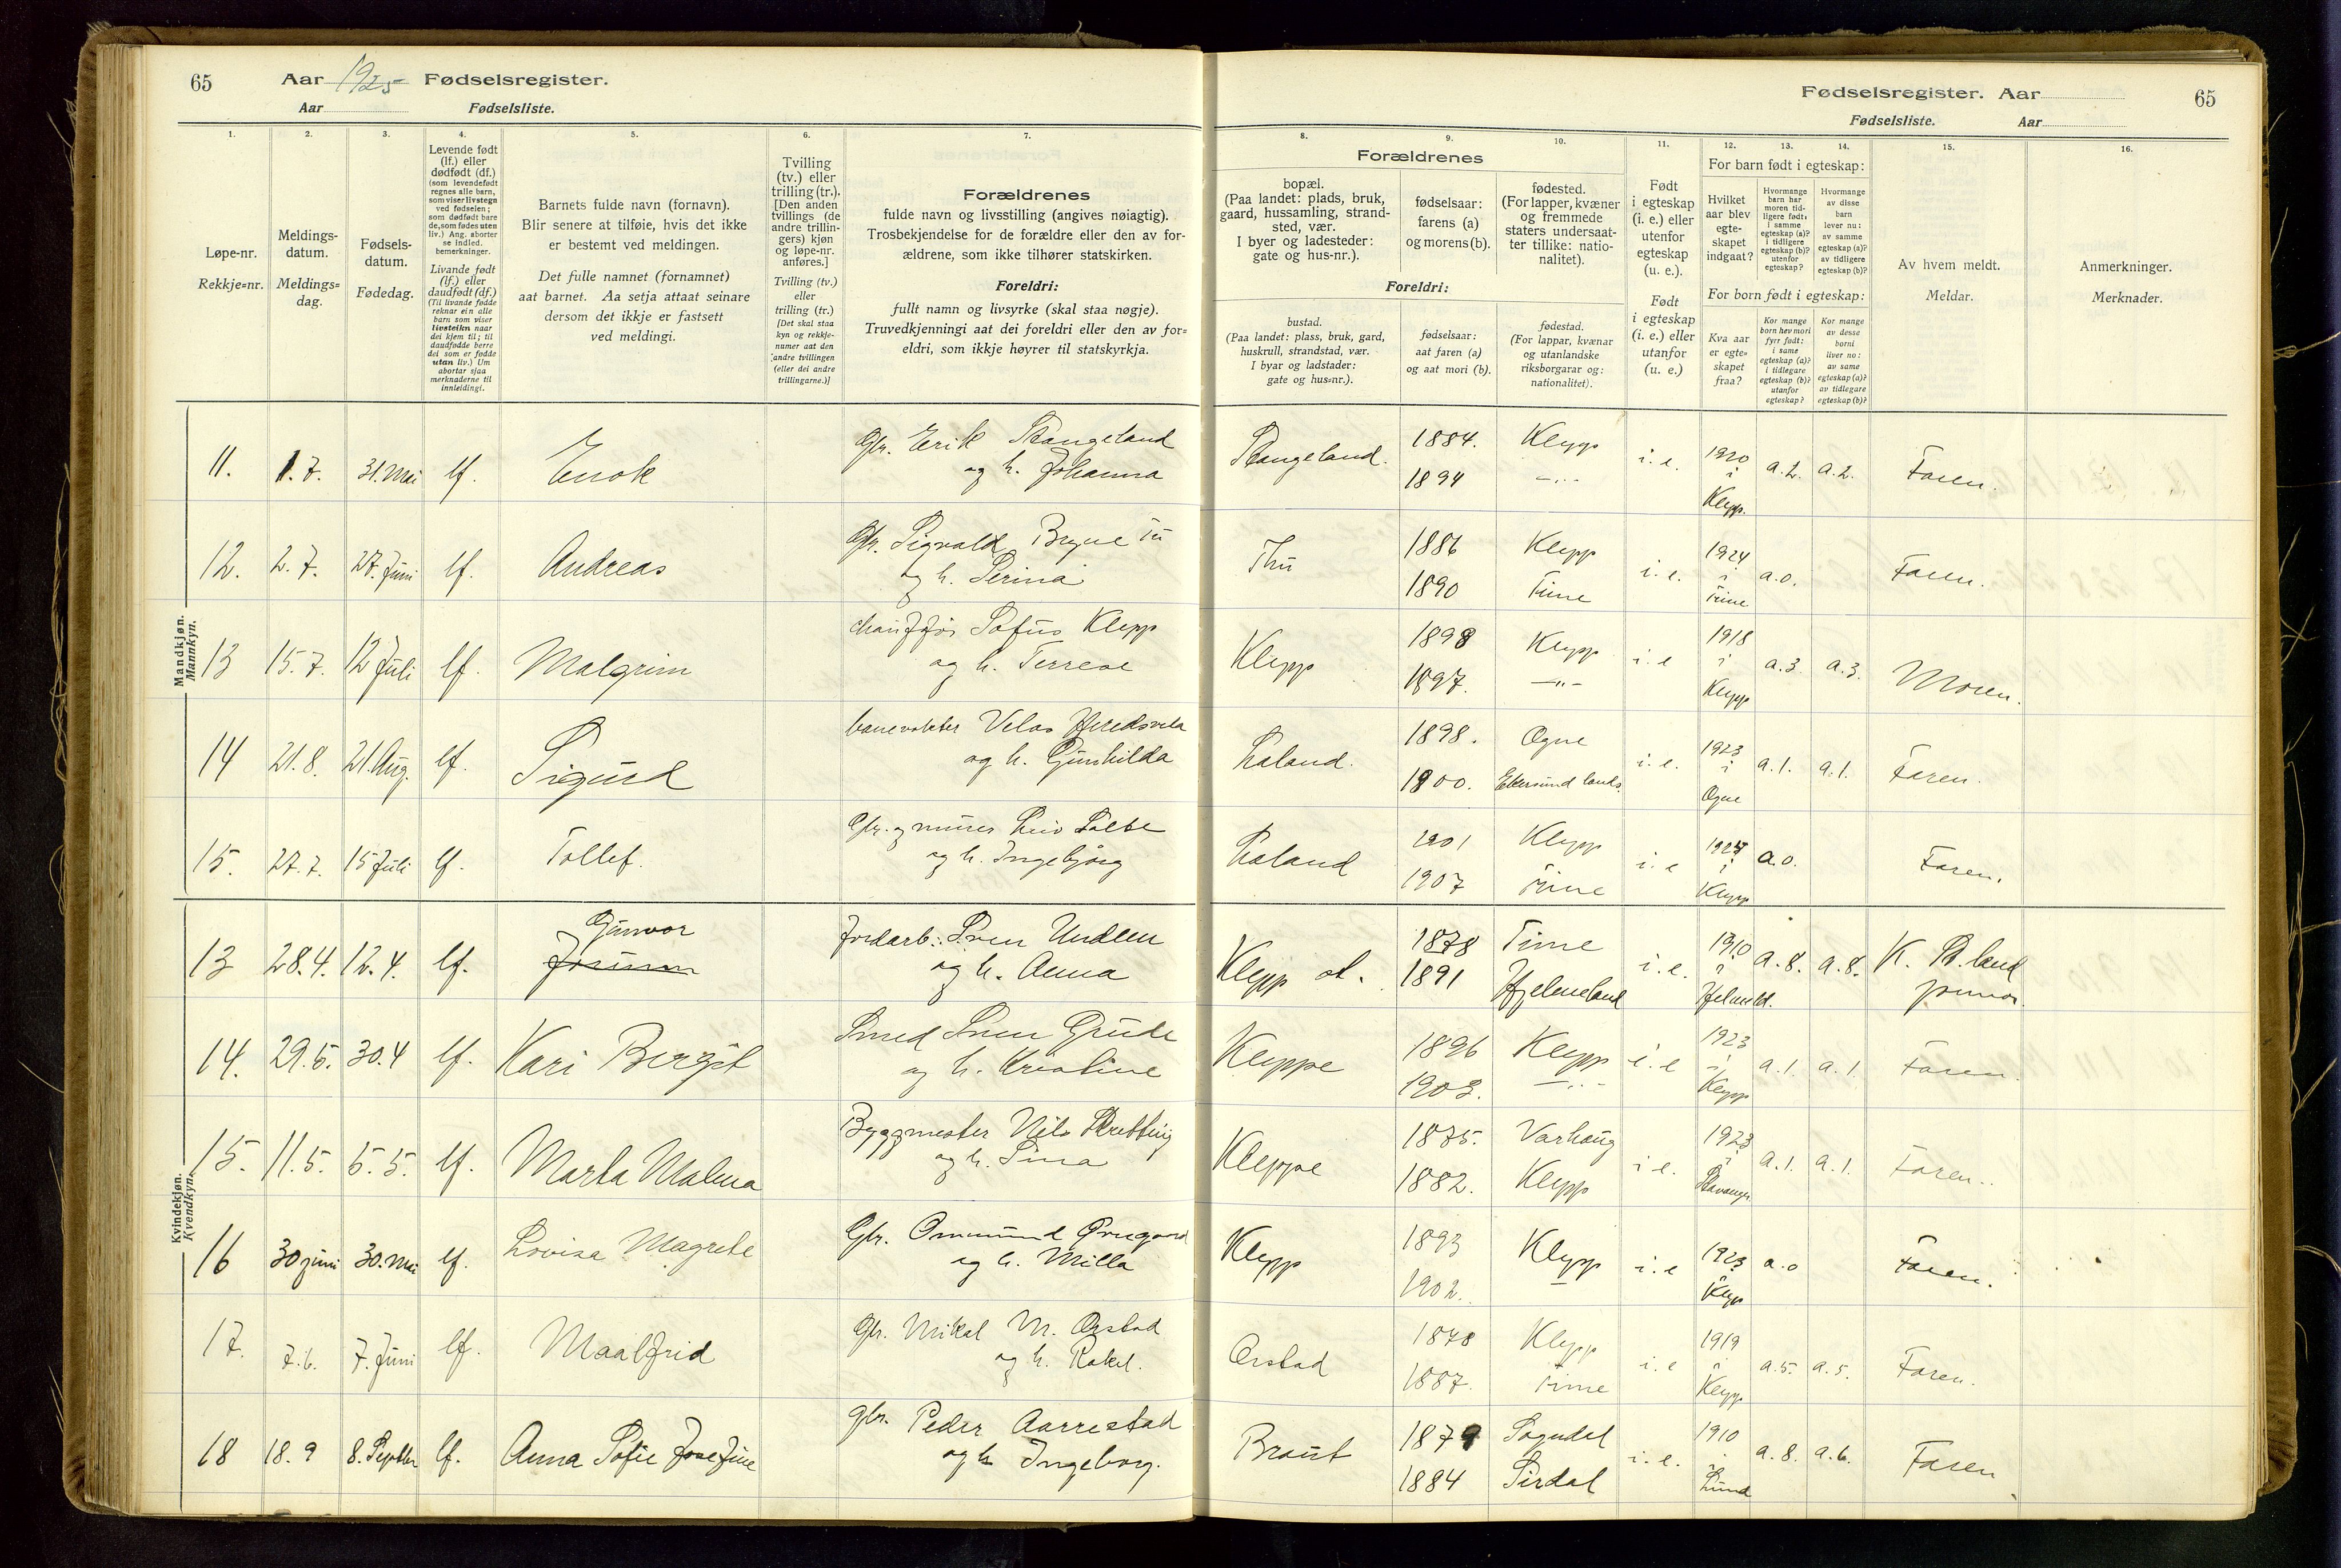 65
Aar 1925 Fødselsregister.
Aar Fødselsliste.
1.
2.
3.
4.
5.
6.
7.
Løpe-nr.
Rekkje=nr.
Meldings-
datum.
Meldings=
dag.
Fødsels-
datum.
Fødedag.
Levende født
(lf.) eller
dødfødt (df.)
(som levendefødt
regnes alle barn,
som viser livstegn
ved fødselen;
som dødfødt bare
de, som fødes uten
liv.) Ang. aborter
se indled.
bemerkninger.
Livande født
(lf.) eller
daudfødt (df.)
(Til livande fødde
reknar ein alle
barn som viser
livsteikn naar
dei kjem til; til
daudfødde berre
dei som er fødde
utan liv.) Um
abortar sjaa
merknaderne til
innleidingi.
Barnets fulde navn (fornavn).
Blir senere at tilføie, hvis det ikke
er bestemt ved meldingen.
Det fulle namnet (fornamnet)
aat barnet. Aa setja attaat seinare
dersom det ikkje er fastsett
ved meldingi.
Tvilling
(tv.) eller
trilling (tr.).
[Den anden
tvillings (de
andre trillin-
gers) kjøn
og løpe-nr.
anføres.]
Tvilling (tv.)
eller
trilling (tr.)
[Det skal staa
kyn og rekkje-
numer aat den
andre tvillingen
(eller dei andre
trillingarne.)]
Forældrenes
fulde navn og livsstilling (angives nøiagtig).
Trosbekjendelse for de forældre eller den av for-
ældrene, som ikke tilhører statskirken.
Foreldri:
fullt namn og livsyrke (skal staa nøgje).
Truvedkjenningi aat dei foreldri eller den av for=
eldri, som ikkje høyrer til statskyrkja.
Fødselsregister. Aar
65
Fødselsliste. Aar
8.
9.
10.
11.
12.
13.
14.
15.
16.
Forældrenes
bopæl.
(Paa landet: plads, bruk,
gaard, hussamling, strand-
sted, vær.
I byer og ladesteder:
gate og hus-nr.).
fødselsaar:
farens (a)
og morens (b).
fødested.
(For lapper, kvæner
og fremmede
staters undersaat-
ter tillike: natio-
nalitet).
Foreldri:
bustad.
(Paa landet: plass, bruk, gard,
huskrull, strandstad, vær.
I byar og ladstader:
gate og hus=nr.).
fødselsaar:
aat faren (a)
og aat mori (b).
fødestad.
(For lappar, kvænar
og utanlandske
riksborgarar og:
nationalitet).
Født
i egteskap
(i. e.) eller
utenfor
egteskap
(u. e.).
Født
i egteskap
(i. e.) eller
utanfor
(u. e.)
For barn født i egteskap:
Hvilket
aar blev
egte-
skapet
indgaat?
Hvormange
barn har
moren tid-
ligere født:
i samme
egteskap (a)?
i tidligere
egteskap (b)?
utenfor
egteskap?
Hvormange
av disse
barn
lever nu:
av samme
egteskap (a)?
av tidligere
egteskap (b)?
For born født i egteskap:
Kva aar
er egte=
skapet
fraa?
Kor mange
born hev mori
fyrr født:
i same
egteskap (a)?
i tidlegare
egteskap (b)?
utanfor
egteskap?
Kor mange
av desse
borni
liver no:
av same
egteskap (a)?
av tidlegare
egteskap (b)?
Av hvem meldt.
Meldar.
Anmerkninger.
Merknader.
Mandkjøn.
Mannkyn.
11. 1.7. 31. Mai lf. Enok Gbr. Erik Stangeland og h. Johanna Stangeland. 1884. 1894 Klepp —..— i. e. 1920 i Klepp. a.2. a.2. Faren.
12. 2.7. 27. Juni lf. Andreas Gbr. Sigvald Bryne Tu og h. Serina Thu 1886 1890 Klepp Time i. e. 1924 i Time a.0. Faren.
13 15.7. 12 Juli lf. Malgrim chauffør Sofus Klepp og h. Terrese Klepp 1898 1897. Klepp —"— i. e 1918 i Klepp a.3 a.3. Moren.
14 21.8. 21. Aug. lf. Sigurd banevokter Velas Heredsvela og h. Gunhilda Laland. 1898. 1900. Ogne Ekersund lands. i. e. 1923 i Ogne a.1. a.1. Faren.
15. 27.7. 15 Juli lf. Tollef. Gbr. og murer og h. Ingebjørg Laland 1901 1907 Klepp Time i. e 1924 i Klepp a.0. Faren.
Kvindekjøn.
Kvendkyn.
13 28.4. 12.4. lf. Gunvor Jordarb. Sven Undem og h. Anna Klepp st. 1878 1891 Time Hjelmeland i. e. 1910 i Hjelmld. a.8. a.8. K. jormor.
14. 29.5. 30.4 lf. Kari Bergit Smed Sven Grude og h. Kristine Kleppe 1896 1903. Klepp —..— i. e 1923 i Klepp a.1. a.1. Faren.
15. 11.5. 5.5. lf. Marta Malena Byggmester Nils Skretting og h. Sina Kleppe 1875. 1882. Varhaug Klepp i. e. 1923 i Stavanger a.1. a.1. Faren.
16 30 juni 30. Mai lf. Lovisa Magrete Gbr. Ommund Øvregaard og h. Milla Klepp 1893 1902. Klepp — i. e 1923 i Klepp a.0 Faren.
17. 7.6. 7. Juni lf. Maalfrid Gbr. Mikal M. Orstad og h. Rakel. Orstad 1878 1887. Klepp Time i. e 1919 i Klepp a.5. a.5. Faren.
18 18.9 8. Septbr lf. Anna Sofie Josefine gbr. Peder Aarrestad og h Ingeborg. Braut 1879 1884 Sogndal Sirdal i. e. 1910 i Lund a.8. a.6. Faren